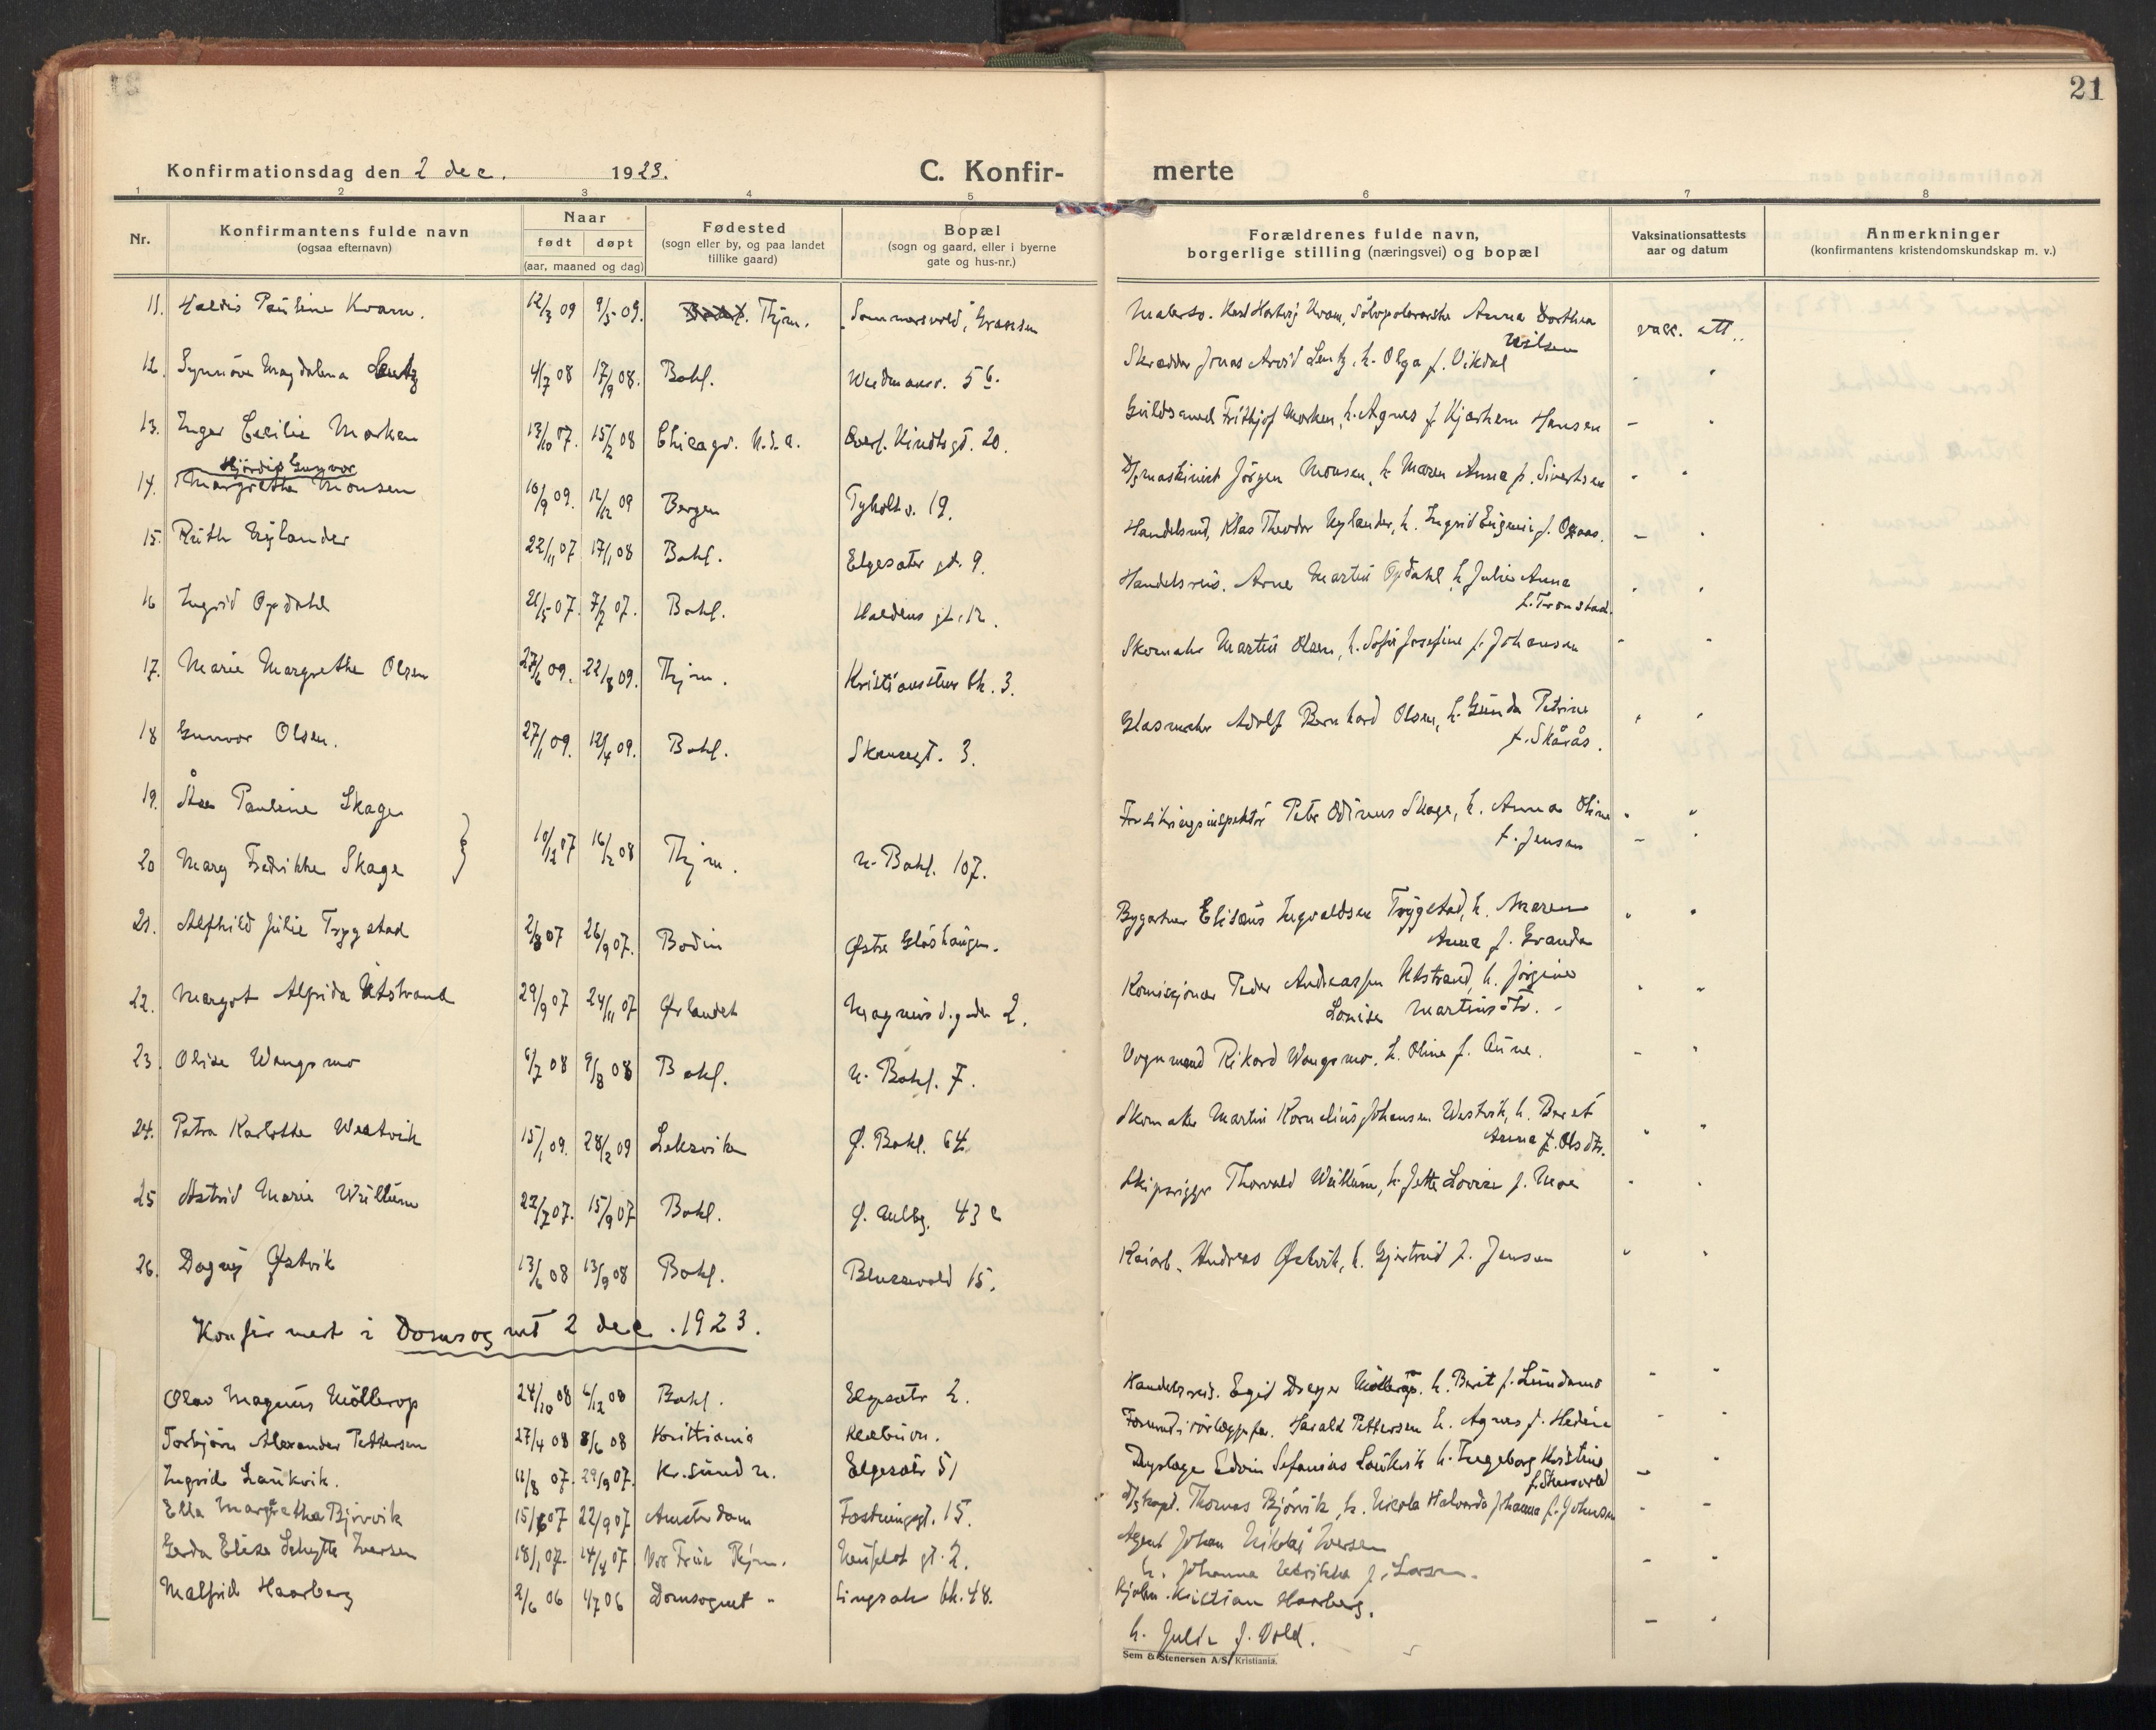 21
Konfirmationsdag den 2 dec. 1923. C. Konfir- merte
1 2 3 4 5 6 7 8
Nr.
Konfirmantens fulde navn
(ogsaa efternavn)
Naar
født døpt
(aar, maaned og dag)
Fødested
(sogn eller by, og paa landet
tillike gaard)
Bopæl
(sogn og gaard, eller i byerne
gate og hus-nr.)
Forældrenes fulde navn,
borgerlige stilling (næringsvei) og bopæl
Vaksinationsattests
aar og datum
Anmerkninger
(konfirmantens kristendomskundskap m. v.)
11. Haldis Pauline Kvam. 12/3 09 9/5 09. Thjm. Sommersvold, Granåsen Karl Hartvig Kvam, Anna Dorthea vacc. att.
Nilsen
12. Synnöve Magdalena Lentz 4/7 08 17/9 08. Bakl. 5 b. Skrædder Jonas Arvid Lentz, h. Olga f. Vikdal
13. Inger Cecilie Morken 13/10 07. 15/2 08 Chicago. U.S.A. 20. Guldsmed Frithjof Morken, h. Agnes f. Kjærhem Hansen
Hjördis Gunvor
14. Margrethe Monsen 10/9 09. 12/12 09 Bergen Tyholt v. 19. D/s maskinist Jörgen Monsen, h. Maren Anna f. Sivertsen
15. Ruth Nylander 22/11 07 17/1 08 Bakl. Elgesæter gt. 9. Handelsm. Klas Theodor Nylander, h. Ingrid Eugenie f. Opaas.
16 Ingrid Opdahl 21/5 07. 7/7 07. Bakl. Haldens gt. 12. Handelsreis. Arne Martin Opdahl h. Julie Anna
f. Tronstad.
17. Marie Margrethe Olsen 27/6 09. 22/8 09. Thjm. Kristiansten bk. 3. Skomaker Martin Olsen, h. Sofie Josefine f. Johansen
18 Gunvor Olsen. 27/1 09. 12/4 09. Bakl. Skansegt. 3. Glasmaker Adolf Bernhard Olsen, h. Gunda Petrine
f. Skårås.
19. Åse Pauline Skage
20 Mary Fredrikke Skage } 10/12 07 16/2 08 Thjm. N. Bakl. 107. Forsikringsinspektör Peter Odinus Skage, h. Anna Oline
f. Jensen
21. Alfhild Julie Trygstad 2/8 07 26/9 07. Bodin Østre Gløshaugen. Bygartner Elisæus Ingvaldsen Trygstad, h. Maren
Anna f. Granda
22. Margot Alfrida Utstrand 29/9 07 24/11 07 Ørlandet Magnus d. g. gaten 2. Komisjonær Peder Andreassen Utstrand, h. Jörgine
Louise Martinsdtr.
23. Olise Wangsmo 6/7 08 9/8 08 Bakl. N. Bakl. 7. Vognmand Rikard Wangsmo. h. Oline f. Aune.
24. Petra Karlotte Westvik 15/1 09. 28/2 09 Leksviken Ø. Bakl. 64. Skomaker Martin Kornelius Johansen Westvik, h. Beret
Anna f. Olsdtr.
25 Astrid Marie Wullum 22/7 07. 15/9 07 Bakl. 43 c Skipsrigger Thorvald Wullum, h. Jette Lovise f. Moe
26. Dagny Østvik 13/6 08 13/9 08 Bakl. Blussuvold 15. Kaiarb. Andreas Østvik, h. Gjertrud f. Jensen
Konfirmert i Domsognet 2 dec. 1923.
Olav Magnus Möllerop 24/10 08 6/12 08 Bakl. Elgesætr 2. Handelsreis. Egil Dreyer Möllerop. h. Berit f. Lundamo
Torbjörn Alexander Pettersen 27/4 08 8/6 08 Kristiania Harald Pettersen h. Agnes f. Hedén
Ingrid Laukvik. 11/8 07. 29/9 07. Kr.sund n. Elgesætr 51 Edvin Stefanius Laukvik h. Ingeborg Kristine
Ella Margretha Björvik 15/6 07 22/9 07 Amsterdam Fæstningsgt. 15. D/s kapt. Thomas Björvik, h. Nicola Halvarda Johanna f. Johnsen
Gerda Elise Schytte Iversen 18/1 07. 14/4 07. Vor Frue Thjm. 2. Agent Johan Nikolai Iversen
h. Johanna Ulrikke f. Larsen.
Malfrid Haarberg 2/6 06 1/7 06 Domsognet Singsaker bk. 48. Kristian Haarberg.
h. Julie f. Vold.
Sem & Stenersen A/S, Kristiania.